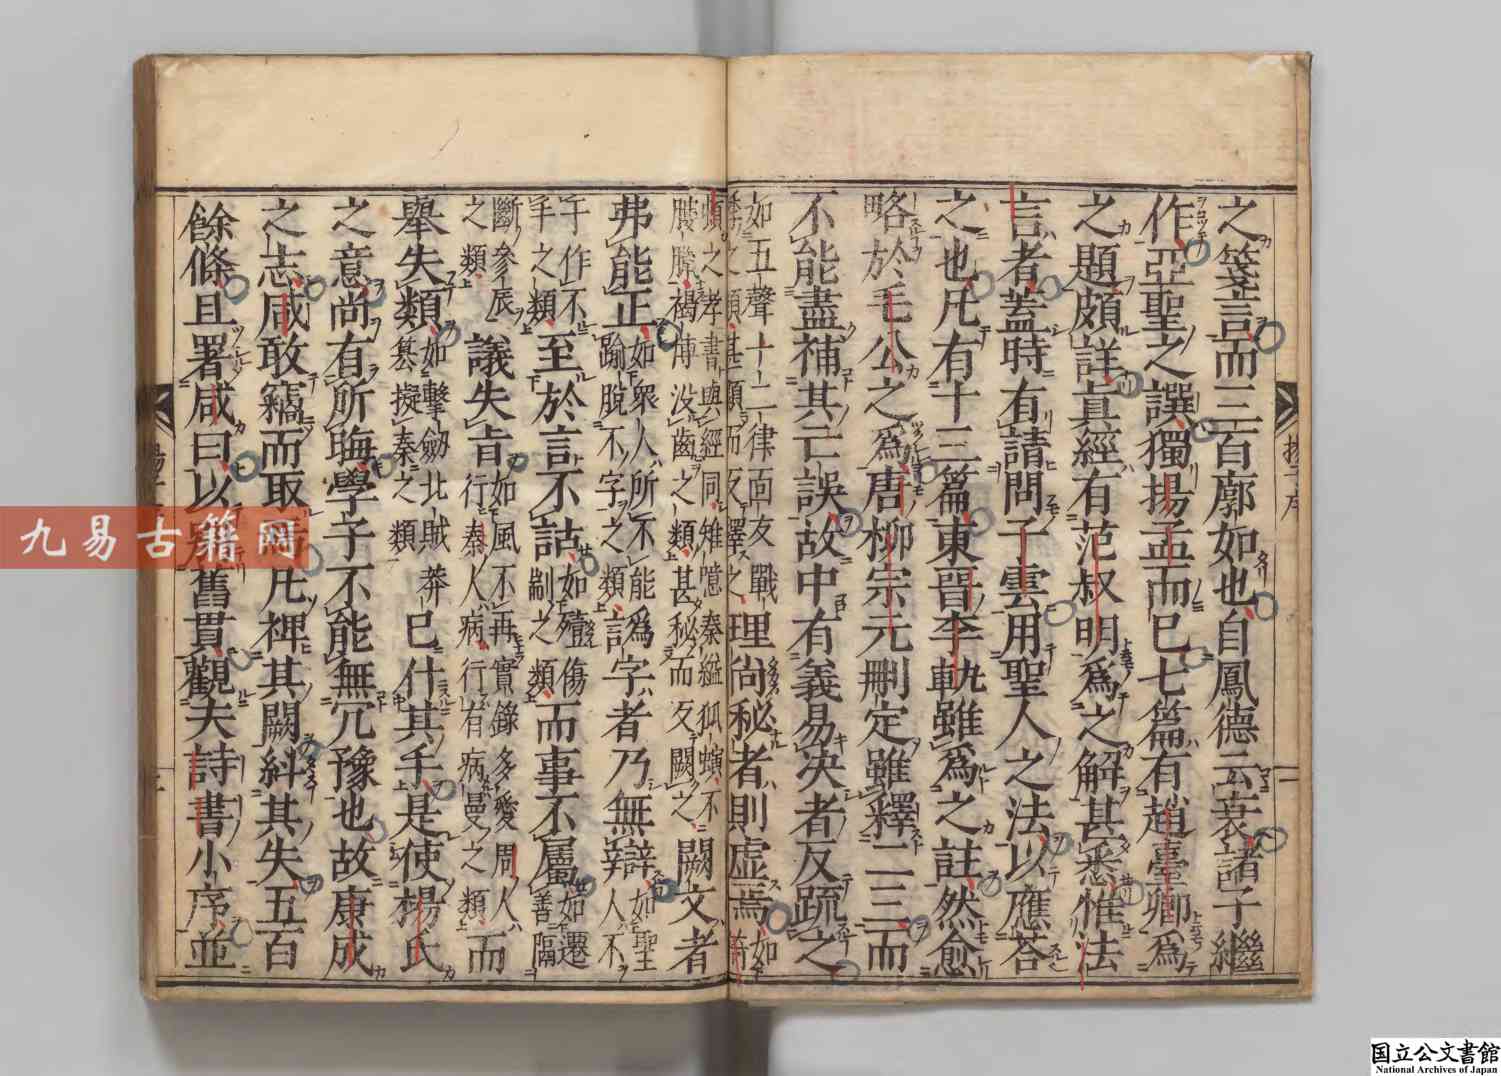 之箋言而三百廓如也自鳳德云衰諸子繼
作亞聖之譔獨揚孟而已七篇有趙臺卿爲
之題頗詳眞經有范叔明爲之解甚悉惟法
言者蓋時有請問子雲用聖人之法以應荅
之也凡有十三篇東晉李軌雖爲之註然愈
略於毛公之爲唐柳宗元刪定雖釋二三而
不能盡補其亡誤故中有義易决者反疏之
如五聲十二律面友戰
季之類甚顯而反釋之
理尚秘者則虛焉
如
頻之孝書與經同雉噫秦縊狐螾不
䐑臏褐博没齒之類甚秘而反闕之
闕文者
弗能正
如衆人所不能爲
踰脫不字之類
字者乃無辯
如聖
人不
于作不
手之類
至於言不詁
如殪傷
劀之類
而事不屬
如遷
善隔
斷參辰
之類
議失㫖
如風不再實錄多愛周人
行泰人病行有病曼之類
而
舉失類
如擊劒北賊莽
簒擬秦之類
已什其手是使楊氏
之意尚有所晦學子不能無冗豫也故康成
之志咸敢竊而取焉凡裨其闕糾其失五百
餘條且署咸曰以別舊貫觀夫詩書小序並
九易古籍网
国立公文書館
National Archives of Japan